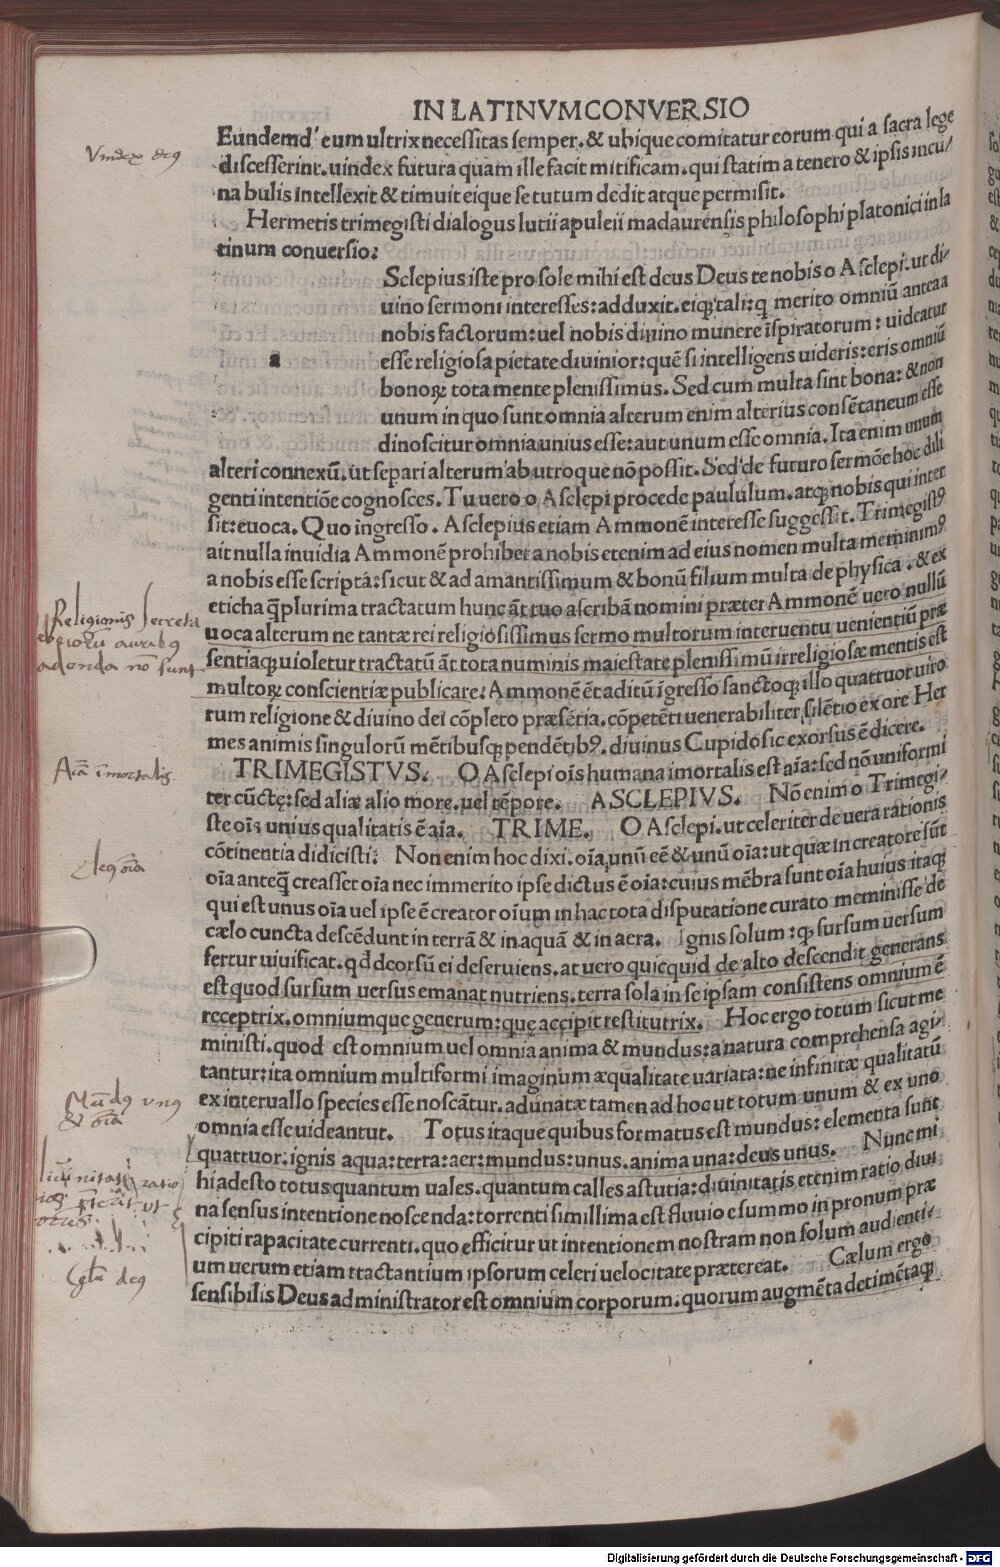 IN LATINVM CONVERSIO
Eundemd' eum ultrix necessitas semper. & ubique comitatur eorum qui a sacra lege
discesserint. uindex futura quam ille facit mitificam. qui statim a tenero & ipsis incu/
na bulis intellexit & timuit eique se tutum dedit atque permisit.
Hermetis trimegisti dialogus lutii apuleii madaurensis philosophi platonici in la
tinum conuersio:
Sclepius iste pro sole mihi est deus Deus te nobis o Asclepi. ut di/
uino sermoni interesses: adduxit. eiqꝫ tali: q merito omniū anteaa
nobis factorum: uel nobis diuino munere īspiratorum: uideatur
a
esse religiosa pietate diuinior: quē si intelligens uideris: eris omniū
bonoꝝ tota mente plenissimus. Sed cum multa sint bona: & non
unum in quo sunt omnia alterum enim alterius consētaneum esse
dinoscitur omnia unius esse: aut unum esse omnia. Ita enim unum
alteri connexū. ut separi alterum ab utroque nō possit. Sed de futuro sermōe hoc dili
genti intentiōe cognosces. Tu uero o Asclepi procede paululum. atqꝫ nobis qui inter
sit: euoca. Quo ingresso. Asclepius etiam Ammonē interesse suggessit. Trimegistꝰ
ait nulla inuidia Ammonē prohibet a nobis etenim ad eius nomen multa meminimꝰ
a nobis esse scripta: sicut & ad amantissimum & bonū filium multa de physica. & ex
eticha q̄ plurima tractatum hunc āt tuo ascribā nomini præter Ammonē uero nullū
uoca alterum ne tantæ rei religiosissimus sermo multorum interuentu uenientiū præ
sentiaqꝫ uioletur tractatū āt tota numinis maiestate plenissimū irreligiosæ mentis est
multoꝝ conscientiæ publicare: Ammonē ēt aditū īgresso sanctoqꝫ illo quattuor uiro
rum religione & diuino dei cōpleto præsētia. cōpetēti uenerabiliter silētio ex ore Her
mes animis singulorū mētibusqꝫ pendētibꝰ. diuinus Cupido sic exorsus ē dicere.
TRIMEGISTVS. O Asclepi oīs humana imortalis est aīa: sed nō uniformi
ter cūctę: sed aliæ alio more. uel tēpore. ASCLEPIVS. Nō enim o Trimegi/
ste oīs unius qualitatis ē aīa. TRIME. O Asclepi. ut celeriter de uera rationis
cōtinentia didicisti: Non enim hoc dixi. oīa unū eē & unū oīa: ut quæ in creatore sūt
oīa anteq̄ creasset oīa nec immerito ipse dictus ē oīa: cuius mēbra sunt oīa huius itaqꝫ
qui est unus oīa uel ipse ē creator oīum in hac tota disputatione curato meminisse de
cælo cuncta descēdunt in terrā & in aquā & in aera. Ignis solum: qꝫ sursum uersum
fertur uiuificat. qd deorsū ei deseruiens. at uero quicquid de alto descendit generans
est quod sursum uersus emanat nutriens. terra sola in se ipsam consistens omnium ē
receptrix. omniumque generum: quę accipit restitutrix. Hoc ergo totum sicut me
ministi. quod est omnium uel omnia anima & mundus: a natura comprehensa agi/
tantur: ita omnium multiformi imaginum æqualitate uariata: ne infinitæ qualitatū
ex interuallo species esse noscātur. adunatæ tamen ad hoc ut totum unum & ex uno
omnia esse uideantur. Totus itaque quibus formatus est mundus: elementa sunt
quattuor: ignis aqua: terra: aer: mundus: unus. anima una: deus unus. Nunc mi
hi adesto totus quantum uales. quantum calles astutia: diuinitatis etenim ratio diui
na sensus intentione noscenda: torrenti simillima est fluuio e summo in pronum præ
cipiti rapacitate currenti. quo efficitur ut intentionem nostram non solum audienti/
um uerum etiam tractantium ipsorum celeri uelocitate prætereat. Cælum ergo
sensibilis Deus administrator est omnium corporum. quorum augmēta detimētaqꝫ
Vindex deꝰ
Religionis secreta
auribꝰ
adenda nō sunt
Aīa īmortalis
Deꝰ oīa
Mūdꝰ vnꝰ
& oīa
Celū deꝰ
Digitalisierung gefördert durch die Deutsche Forschungsgemeinschaft - DFG